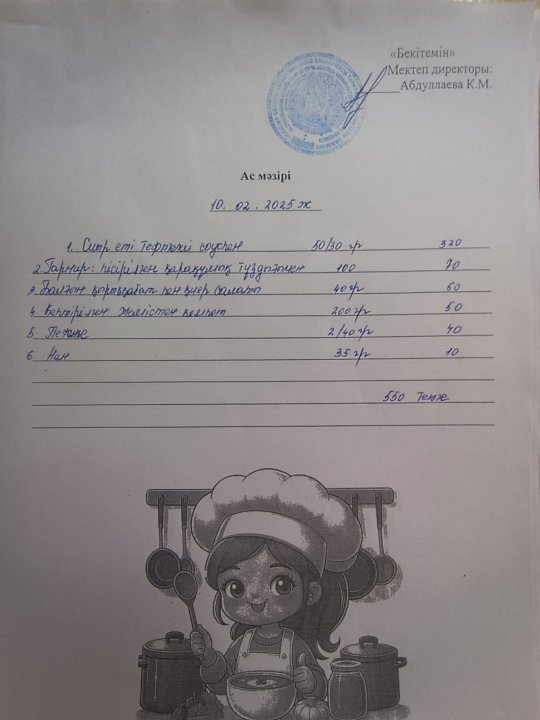 «Бекітемін»
Мектеп директоры:
Абдуллаева К.М.
Ас мәзірі
10. 02. 2025 ж
1. Сиыр еті тефтелі соуспен 50/30 гр 320
2. Гарнир: пісірілген қарақұмық тұздықпен 100 70
3. Балғын қырыққабат пен қияр салаты 40 гр 60
4. Кептірілген жемістен компот 200 гр 50
5. Печенье 2/40 гр 40
6. Нан 35 гр 10
550 теңге